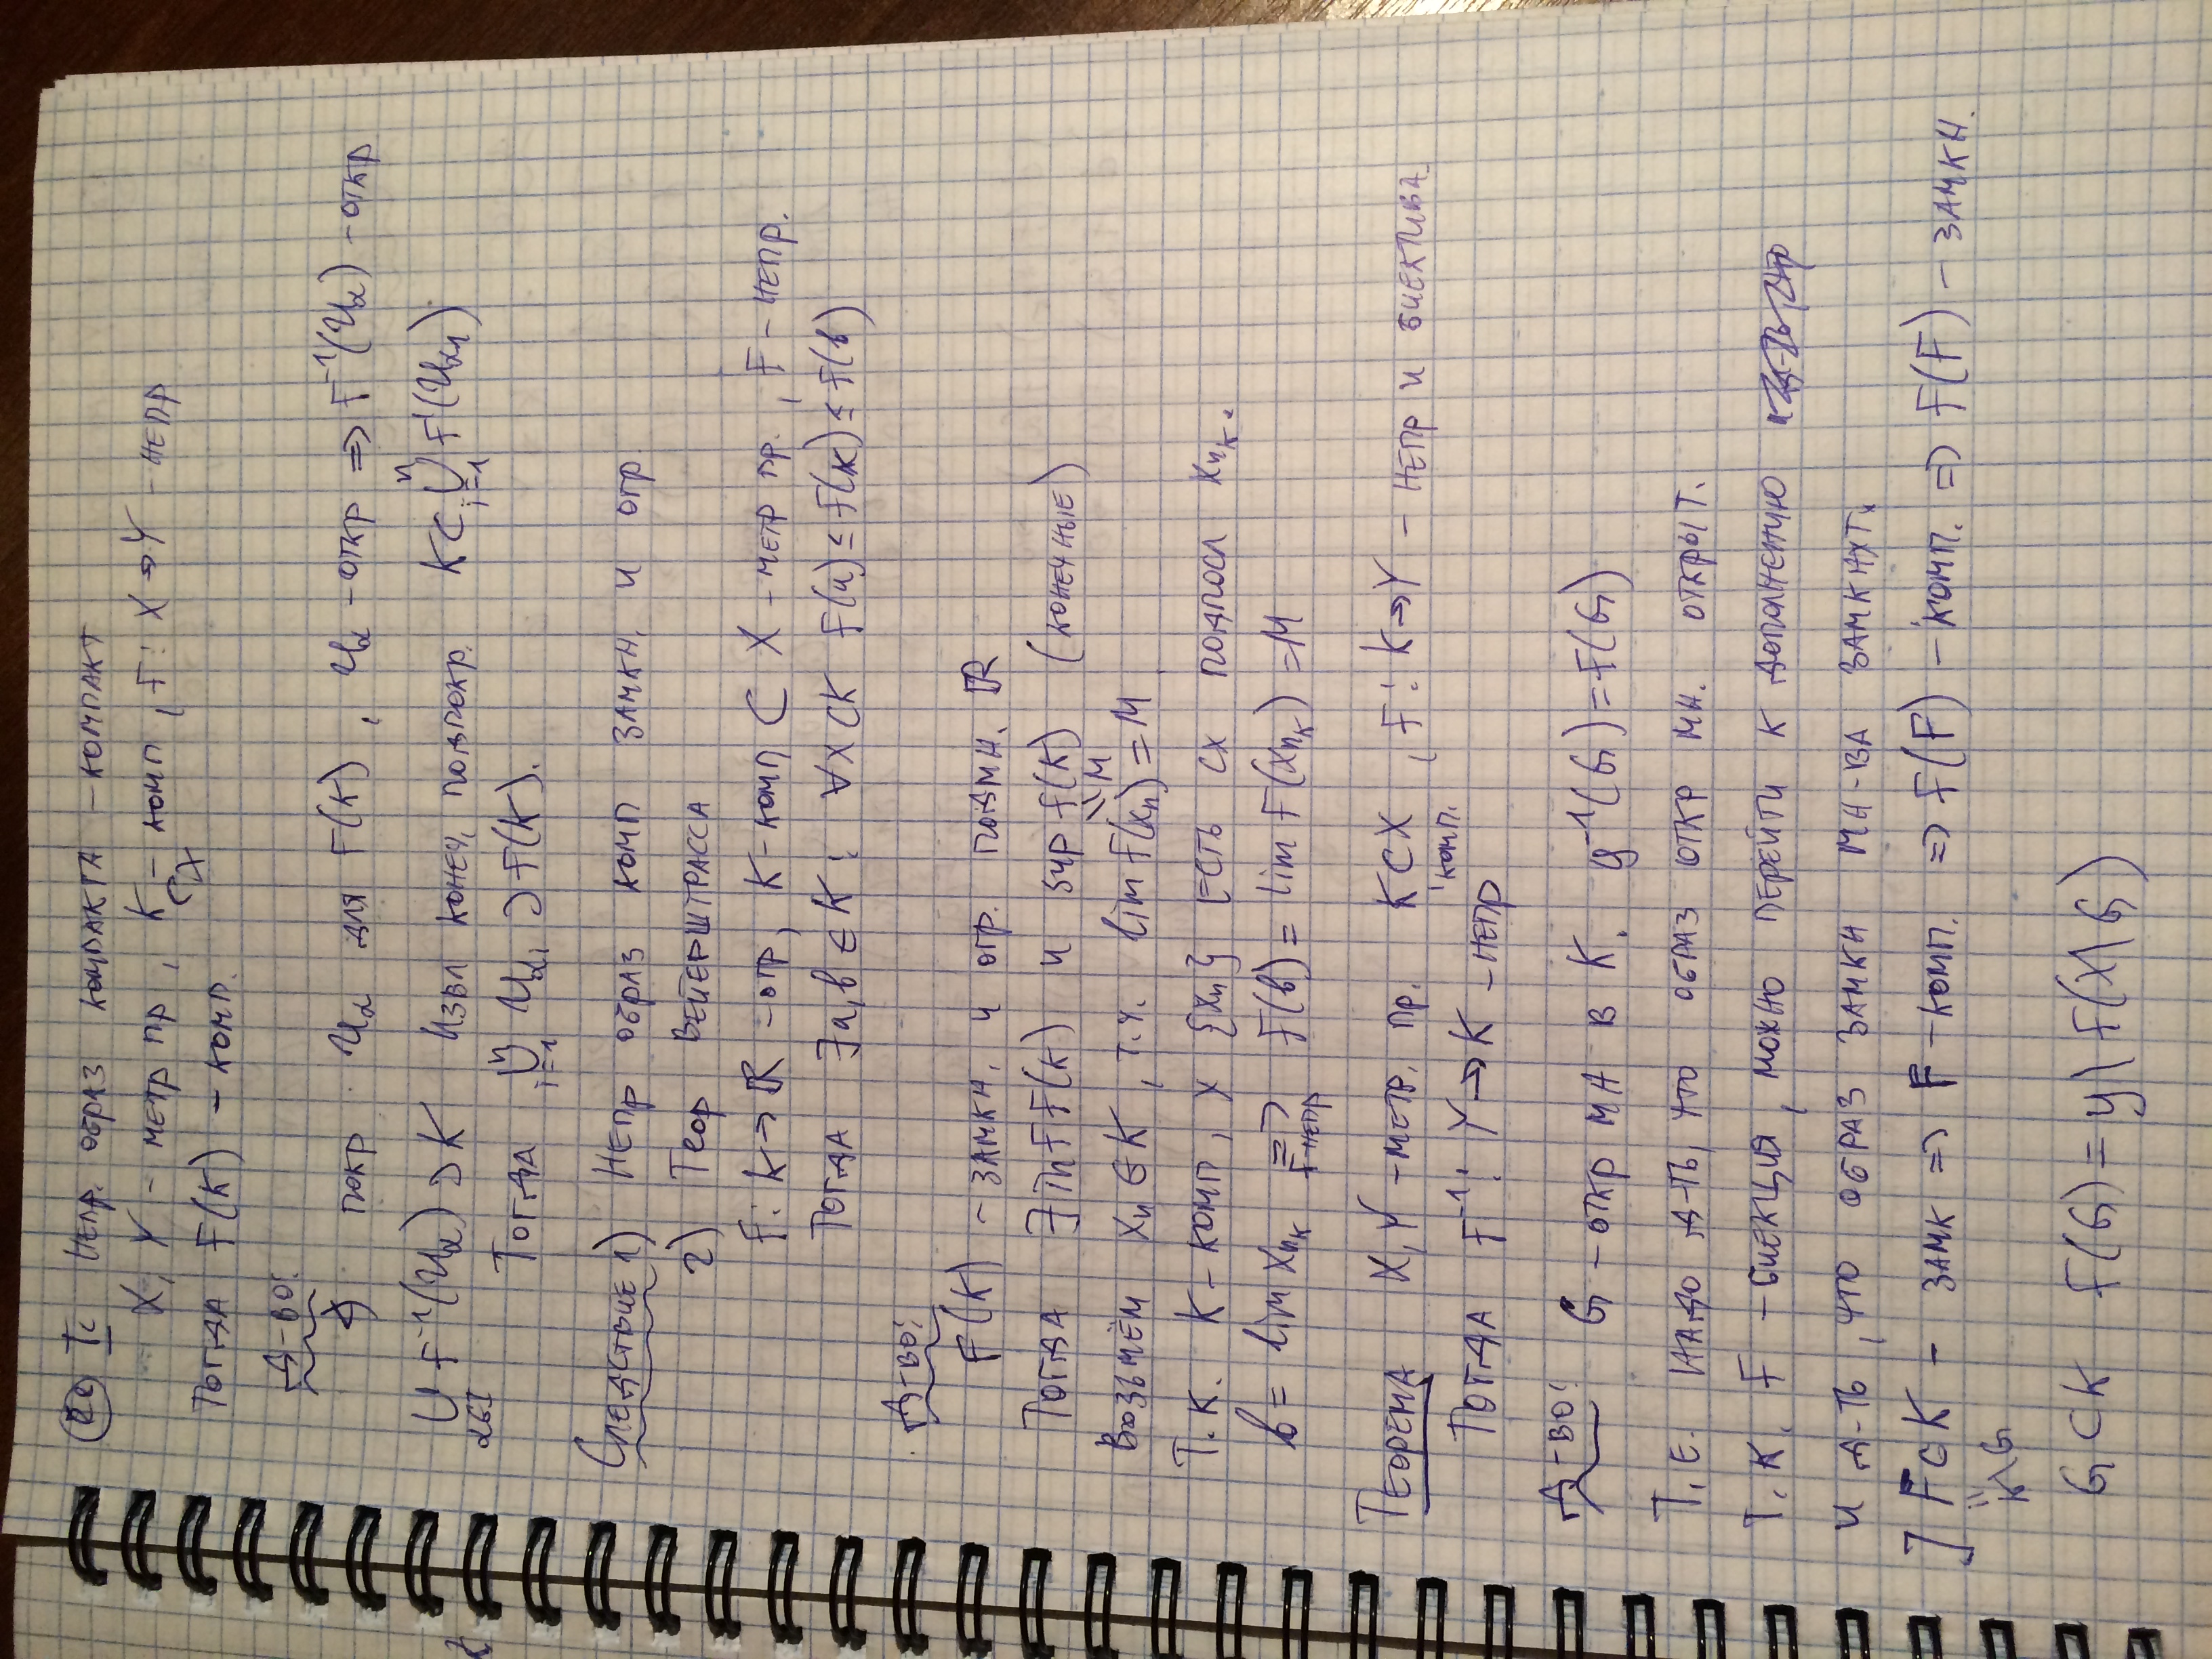 22 Т: Непр. образ компакта – компакт
X, Y – метр пр, K – комп, F: X → Y – непр
⊂ X
Тогда F(K) – комп.
Д-во:
покр. U_α для F(K), U_α – откр ⇒ F⁻¹(U_α) – откр
∪_{α∈I} F⁻¹(U_α) ⊃ K Извл конеч. подпокр. K ⊂ ∪_{i=1}^n F⁻¹(U_{α_i})
Тогда ∪_{i=1}^n U_{α_i} ⊃ F(K).
Следствие 1) Непр образ комп замкн. и огр.
2) Теор Вейерштрасса
F: K → ℝ – огр, K – комп ⊂ X – метр пр., F – непр.
Тогда ∃ a, b ∈ K: ∀ x ⊂ K F(a) ≤ F(x) ≤ F(b)
Д-во:
F(K) – замкн. и огр. подмн. ℝ
Тогда ∃ inf F(K) и sup F(K) (конечные)
= M
Возьмём x_n ∈ K, т.ч. lim F(x_n) = M
Т.к. K – комп, у {x_n} есть сх подпосл x_{n_k}.
b = lim x_{n_k} ⇒ F(b) = lim F(x_{n_k}) = M
F-непр
Теорема X, Y – метр. пр. K ⊂ X, F: K → Y – непр и биектива
комп.
Тогда F⁻¹: Y → K – непр
Д-во:
G – откр мн в K. g⁻¹(G) = F(G)
Т.е. надо д-ть, что образ откр мн. открыт.
Т.к. F – биекция, можно перейти к дополнению
и д-ть, что образ замкн мн-ва замкнут.
] F ⊂ K – замк ⇒ F – комп. ⇒ F(F) – комп. ⇒ F(F) – замкн.
=
K\G
G ⊂ K F(G) = Y \ F(X \ G)